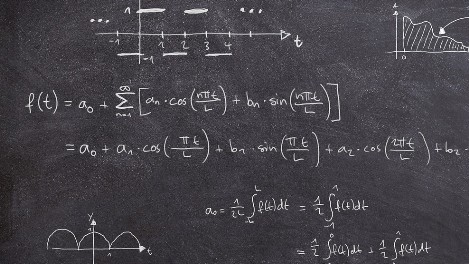 ... 1 ...
-1 1 2 3 4 t
-1
f(t) = a₀ + ∑ₙ₌₁^∞ [aₙ·cos(nπt/L) + bₙ·sin(nπt/L)]
= a₀ + a₁·cos(πt/L) + b₁·sin(πt/L) + a₂·cos(2πt/L) + b₂·
a₀ = 1/2L ∫₋L^L f(t)dt = 1/2 ∫₋₁^1 f(t)dt
= 1/2 ∫₋₁^0 f(t)dt + 1/2 ∫₀^1 f(t)dt
y
1 t